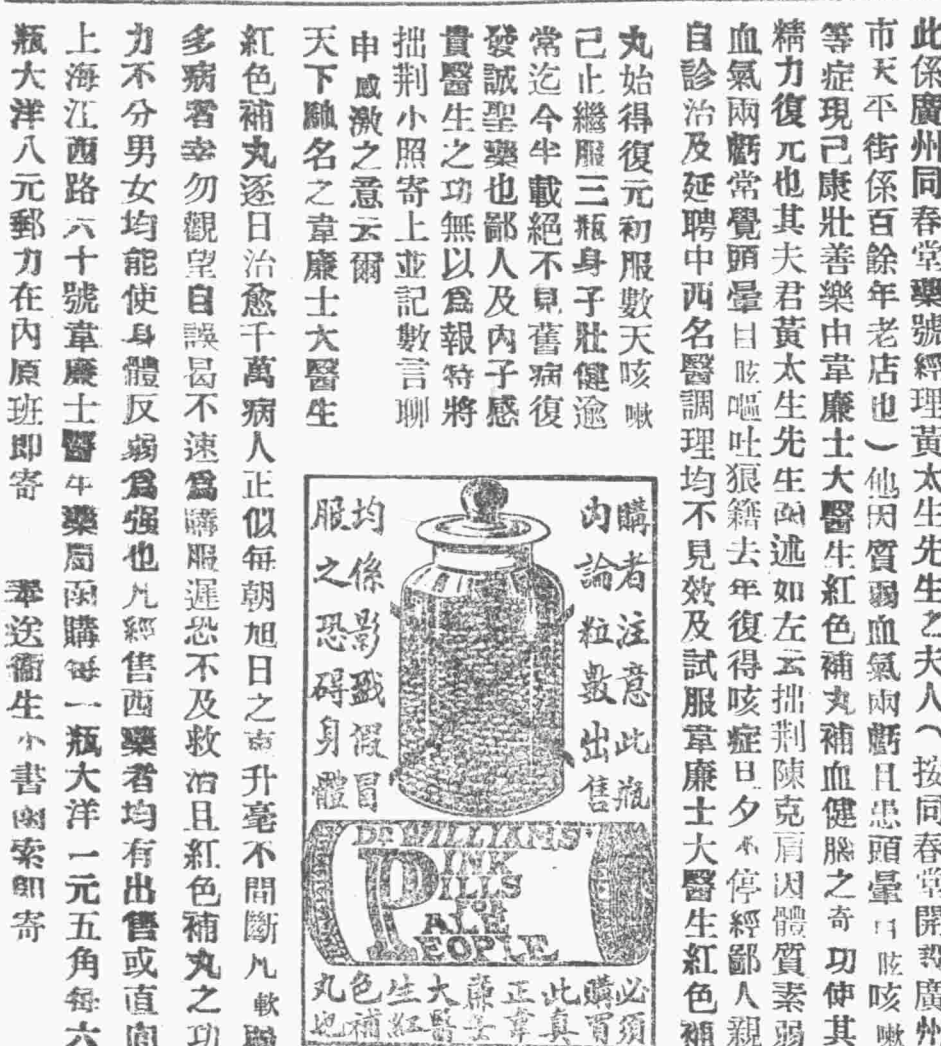 此係廣州同春堂藥號經理黃太生先生之夫人（按同春堂開設廣州
市天平街係百餘年老店也）他因質弱血氣兩虧且患頭暈目眩咳嗽
等症現已康壯善樂由韋廉士大醫生紅色補丸補血健腦之奇功使其
精力復元也其夫君黃太生先生函述如左云拙荆陳克肩因體質素弱
血氣兩虧常覺頭暈目眩嘔吐狼籍去年復得咳症日夕不停經鄙人親
自診治及延聘中西名醫調理均不見效及試服韋廉士大醫生紅色補
丸始得復元初服數天咳嗽
己止繼服三瓶身子壯健逾
常迄今半載絕不見舊病復
發誠聖藥也鄙人及內子感
貴醫生之功無以爲報特將
拙荆小照寄上並記數言聊
申感激之意云爾
天下馳名之韋廉士大醫生
紅色補丸逐日治愈千萬病人正似每朝旭日之東升毫不間斷凡軟弱
多病者幸勿觀望自誤曷不速爲購服遲恐不及救治且紅色補丸之功
力不分男女均能使身體反弱爲强也凡經售西藥者均有出售或直向
上海江西路六十號韋廉士醫生藥局函購每一瓶大洋一元五角每六
瓶大洋八元郵力在內原班即寄 奉送衞生小書函索即寄
購者注意此瓶
內論粒數出售
均係影戤假冒
服之恐碍身體
DR WILLIAMS'
PINK
PILLS
FOR
PALE
PEOPLE
必須
購買
此真
正韋
廉士
大醫
生紅
色補
丸也